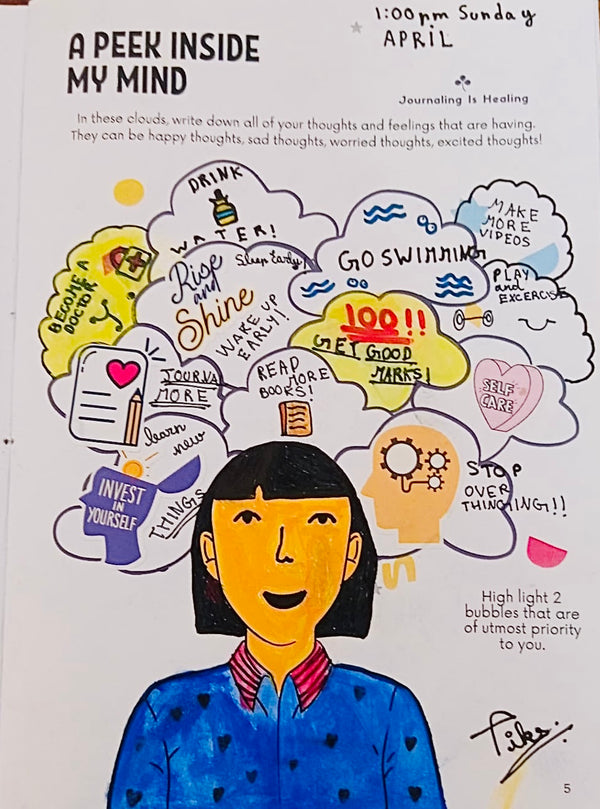 1:00pm Sunday
APRIL
A PEEK INSIDE
MY MIND
Journaling Is Healing
In these clouds, write down all of your thoughts and feelings that are having.
They can be happy thoughts, sad thoughts, worried thoughts, excited thoughts!
DRINK
WATER!
GO SWIMMING
MAKE
MORE
VIDEOS
BECOME A
DOCTOR
Rise
and
Shine
Sleep Early!
WAKE UP
EARLY!
PLAY
and
EXCERCISE
100!!
GET GOOD
MARKS!
JOURNAL
MORE
READ
MORE
BOOKS!
SELF
CARE
learn
new
THINGS
INVEST
IN
YOURSELF
STOP
OVER
THINGING!!
High light 2
bubbles that are
of utmost priority
to you.
Tiks.
5